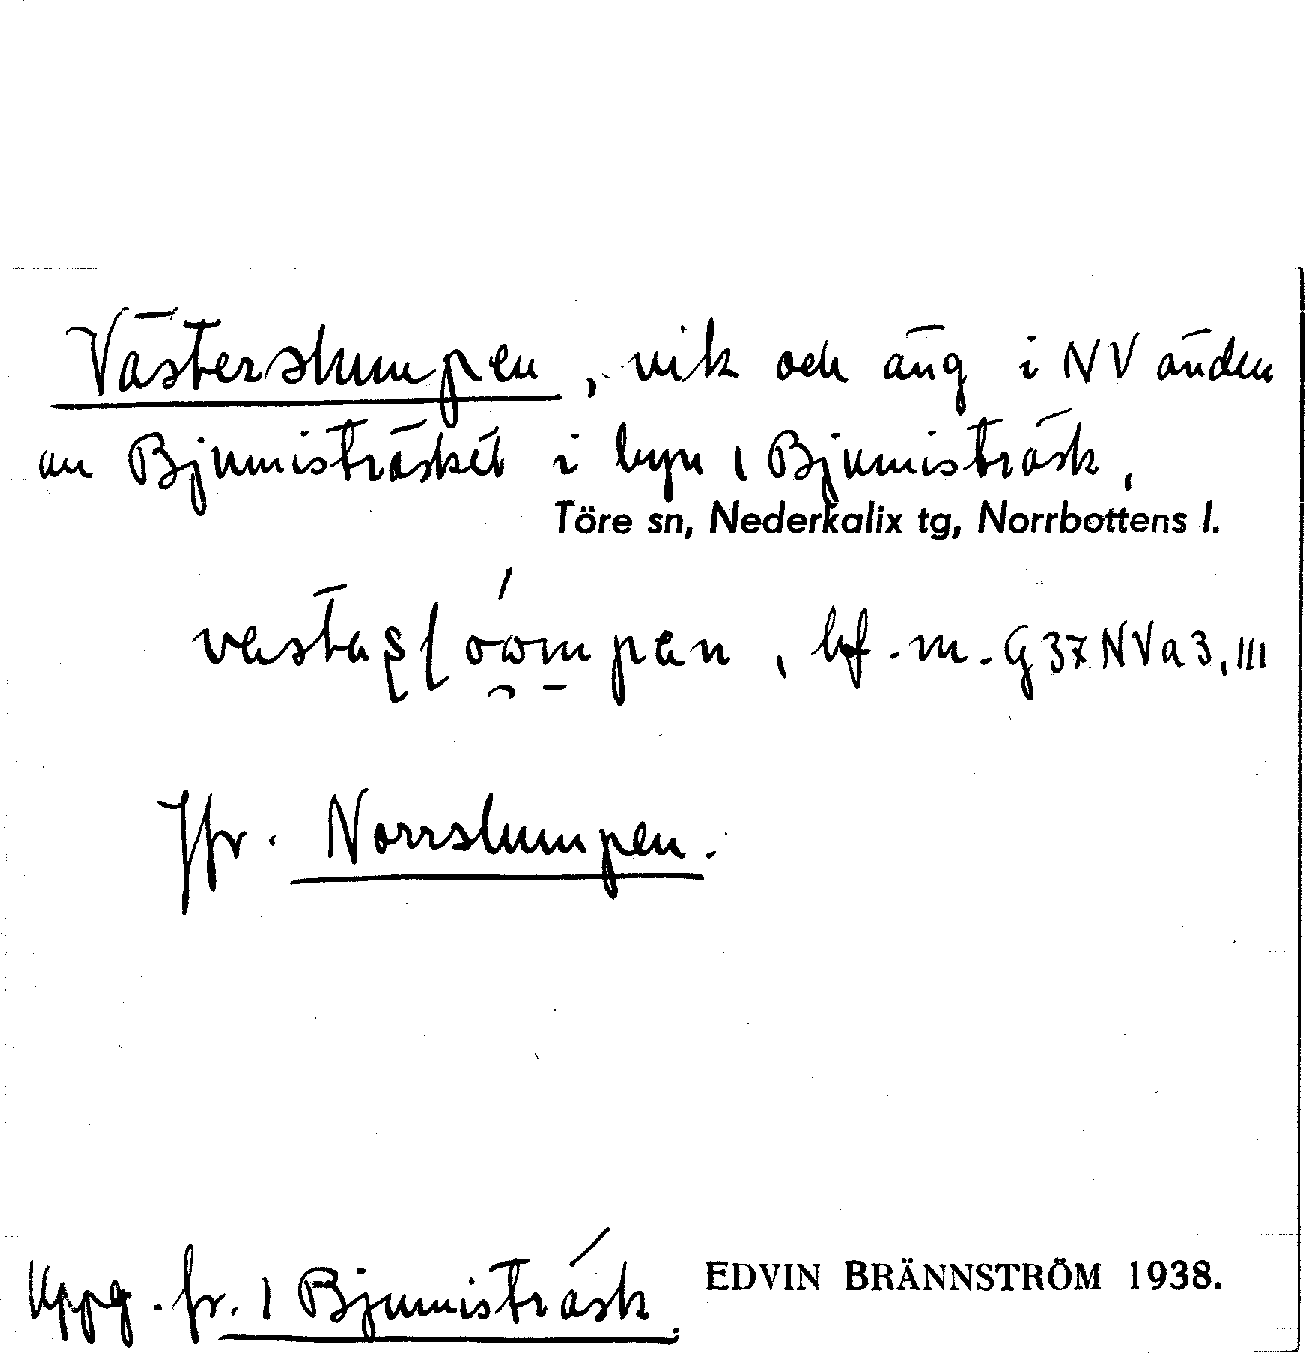 Västerslumpen, vik och äng i NV änden
av Bjumisträsket i byn 1 Bjumisträsk,
Töre sn, Nederkalix tg, Norrbottens l.
, bf. m. G 37 NV a 3, III
Jfr. Norrslumpen.
Uppg. fr. 1 Bjumisträsk.
EDVIN BRÄNNSTRÖM 1938.